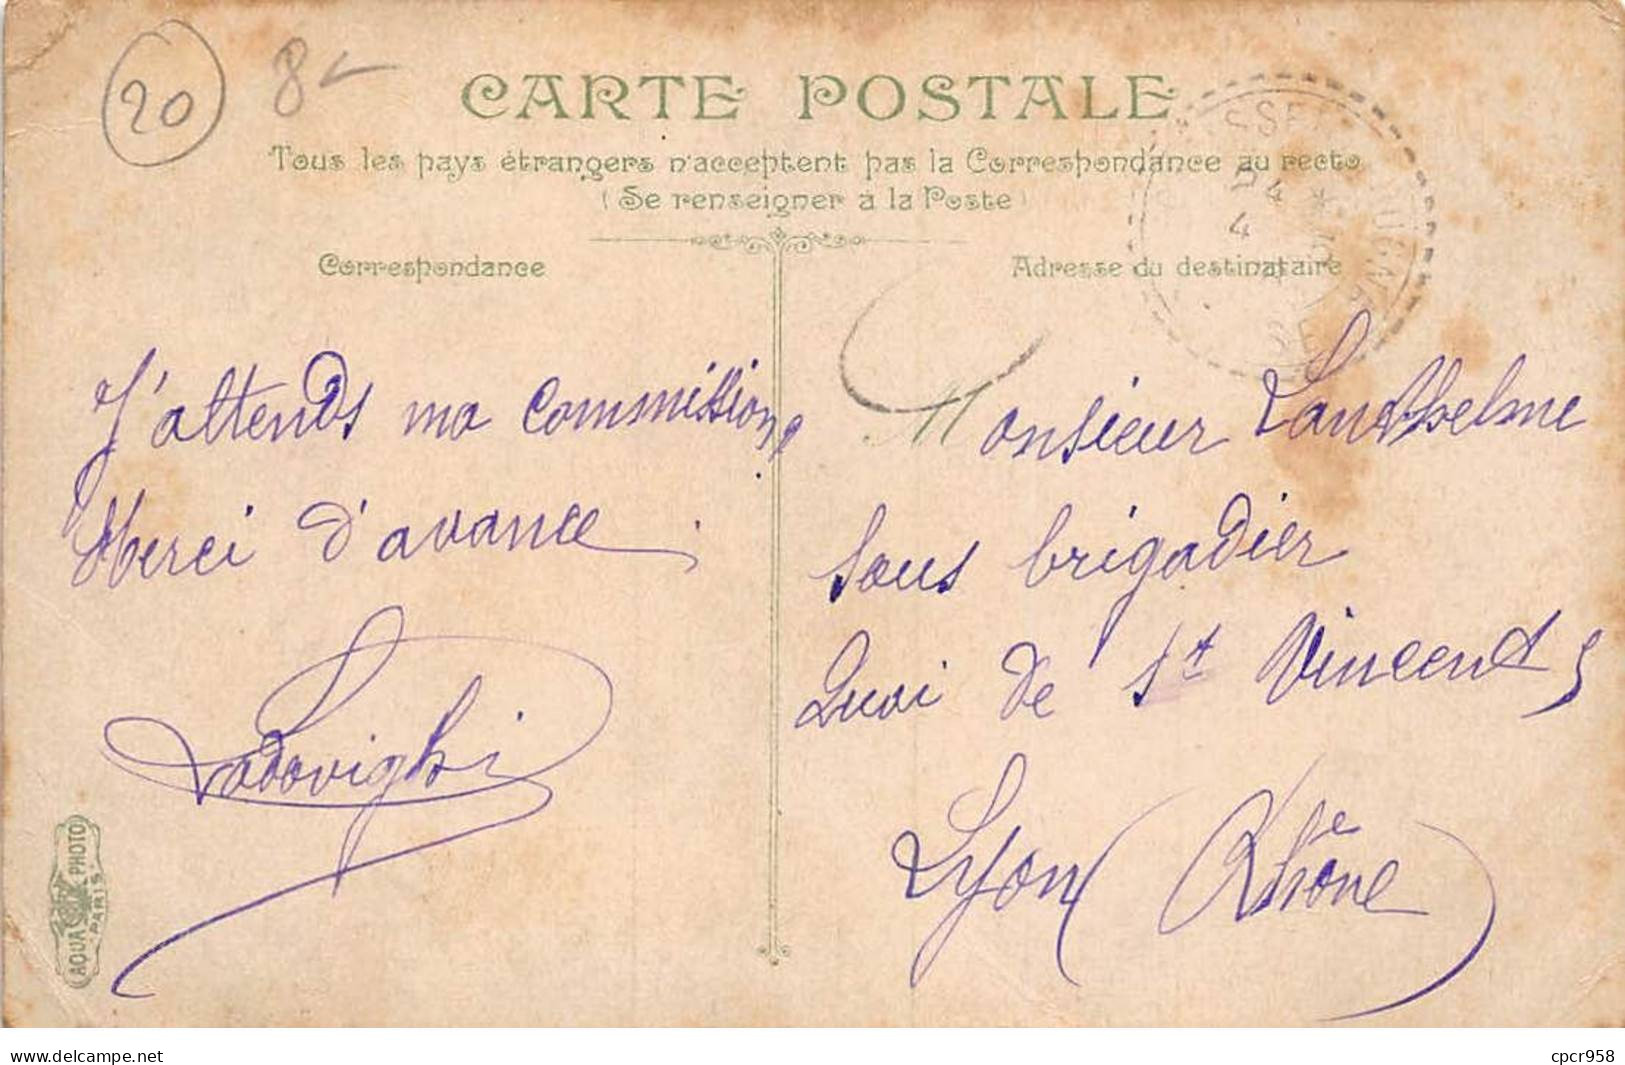 20 8
CARTE POSTALE
Tous les pays étrangers n'acceptent pas la Correspondance au recto
(Se renseigner à la Poste)
Correspondance
Adresse du destinataire
J'attends ma commission
Merci d'avance
Lodovighi
Monsieur Lanthelme
Sous brigadier
Quai de St Vincent
Lyon (Rhône)
AQUA PHOTO
PARIS
delcampe.net
cpcr958